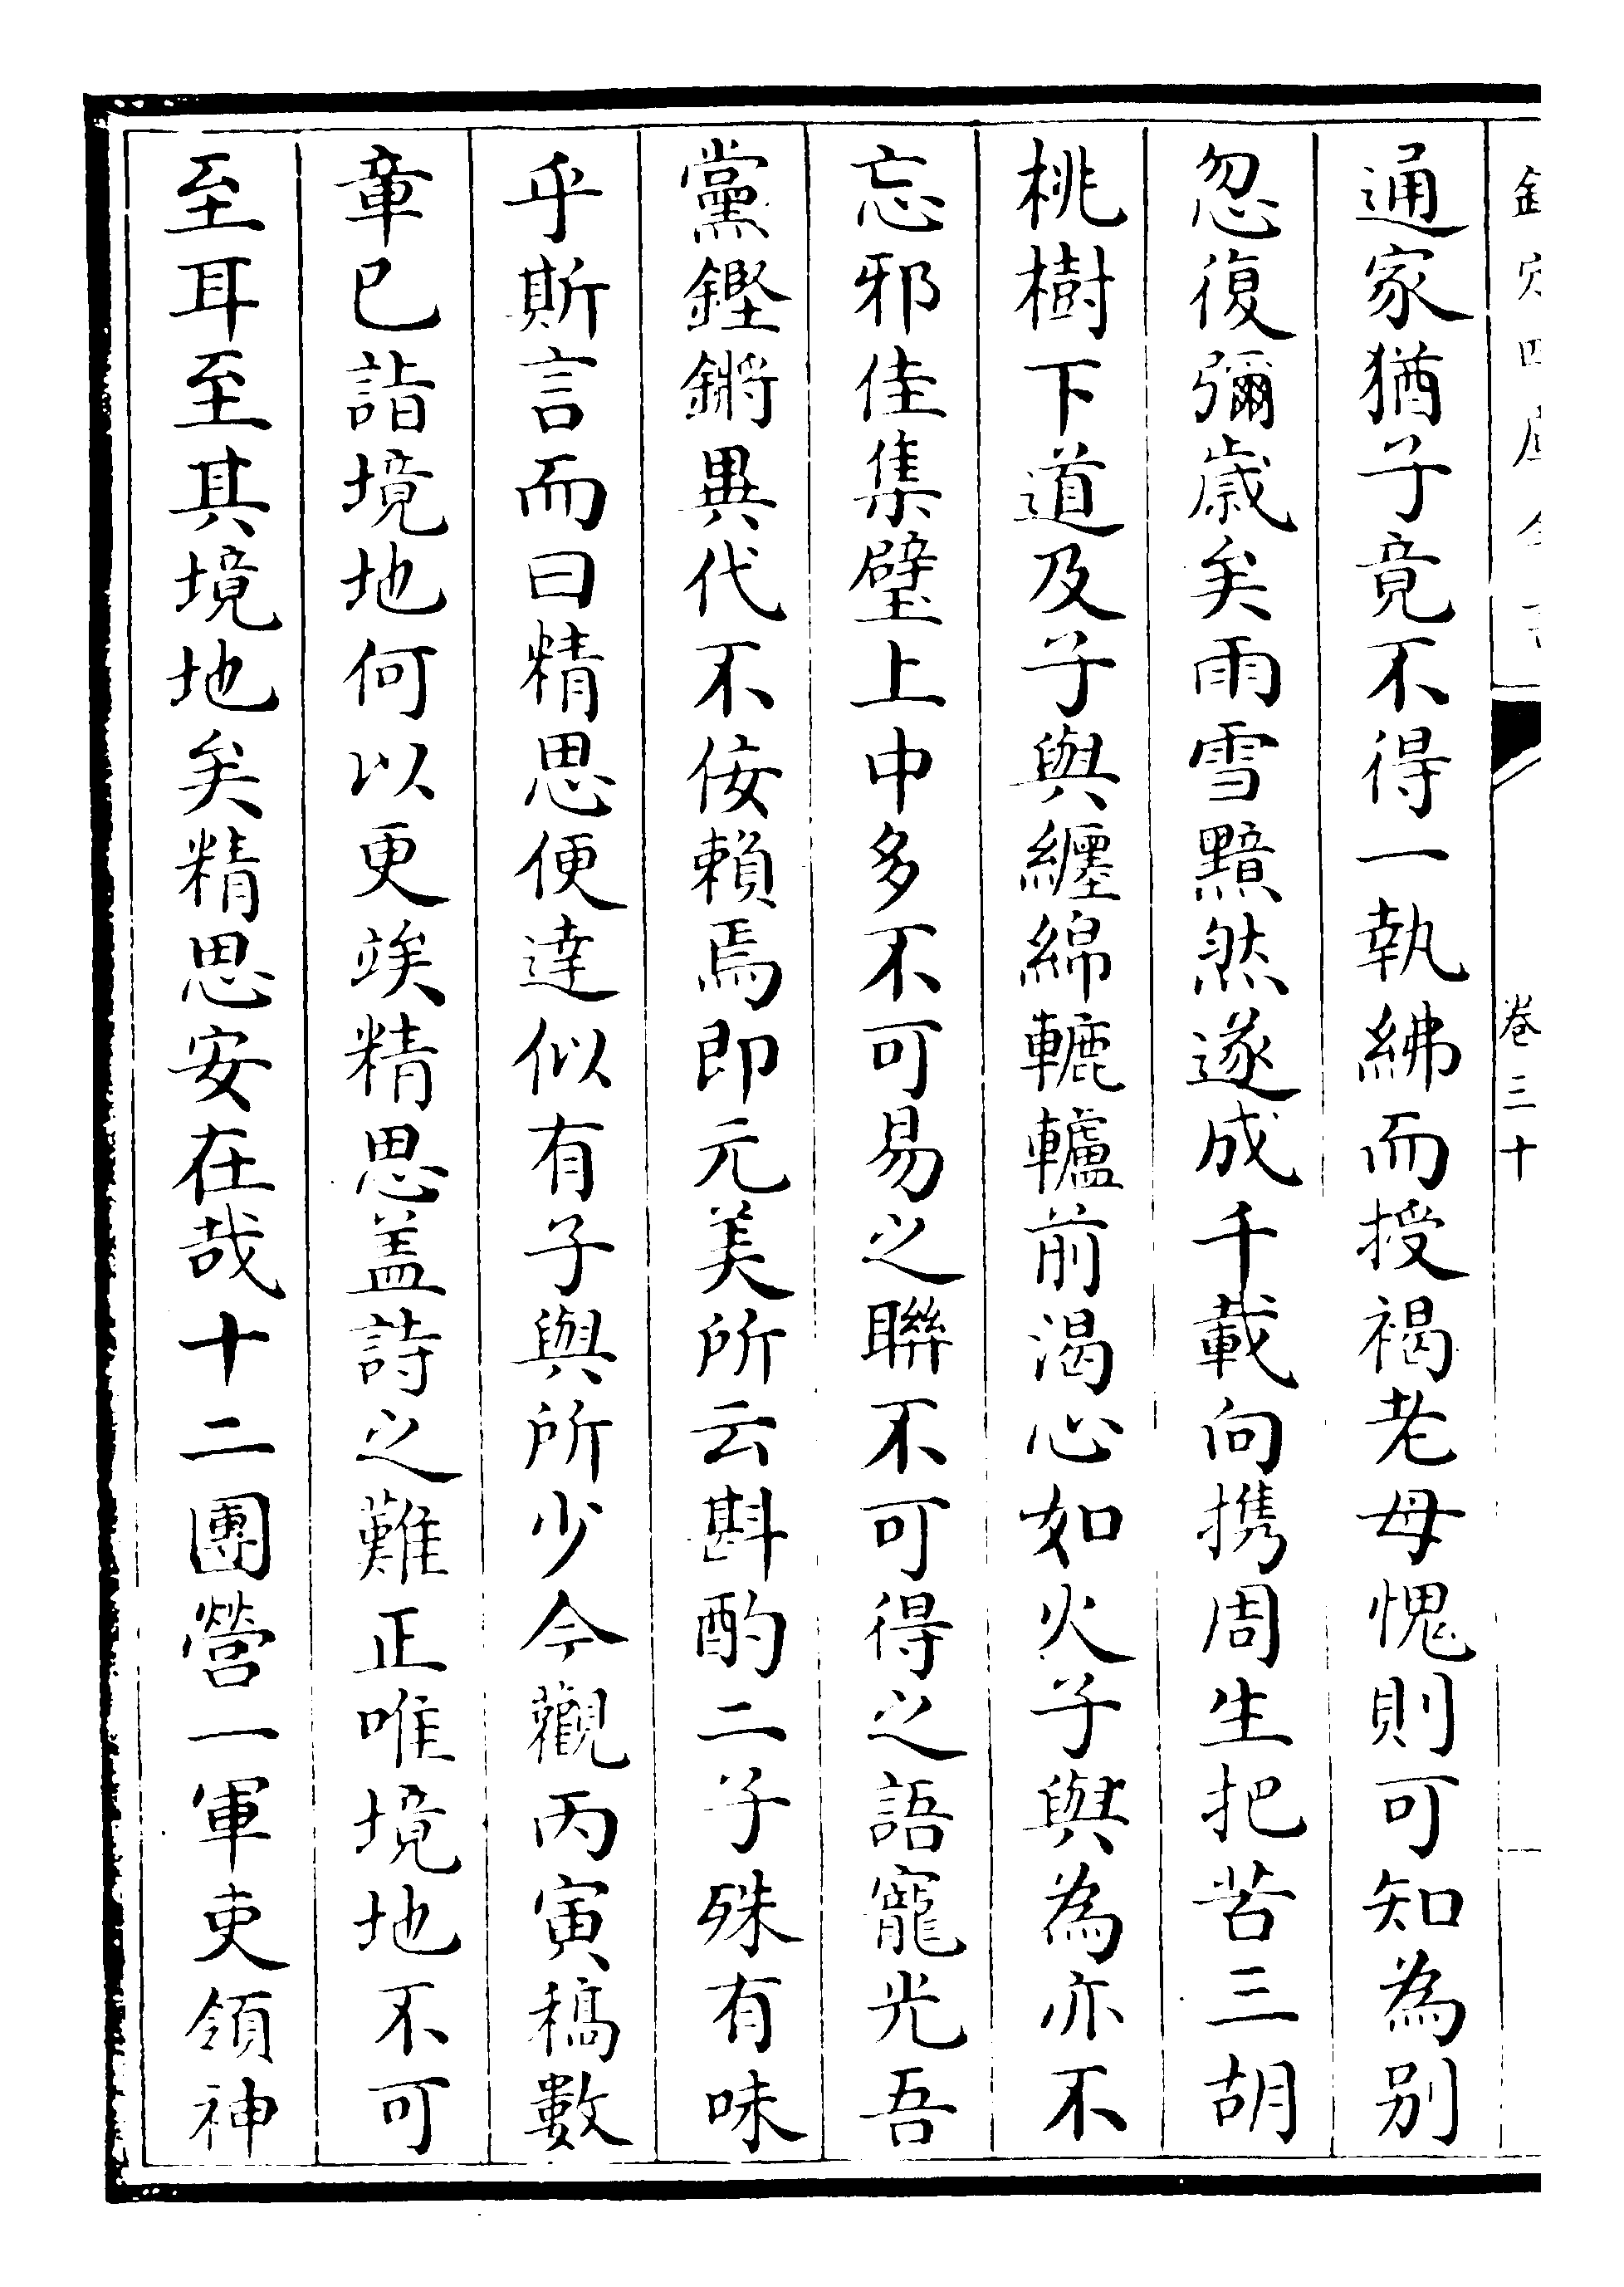 通家猶子竟不得一執紼而授褐老母愧則可知為别
忽復彌歲矣雨雪黯然遂成千載向携周生把苦三胡
桃樹下道及子與纏綿轆轤前渴心如火子與為亦不
忘邪佳集璧上中多不可易之聯不可得之語寵光吾
黨鏗鏘異代不佞賴焉即元美所云斟酌二子殊有味
乎斯言而曰精思便達似有子與所少今觀丙寅稿數
章已詣境地何以更竢精思盖詩之難正唯境地不可
至耳至其境地矣精思安在哉十二團營一軍吏領神
卷三十